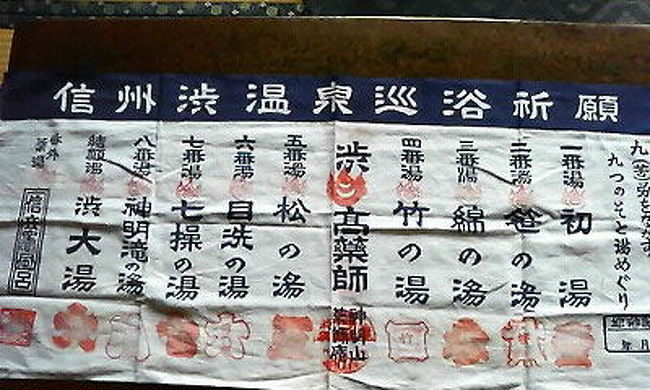 信州渋温泉巡浴祈願
九(苦)労をながす
九つのそと湯めぐり
一番湯 初湯
二番湯 笹の湯
三番湯 綿の湯
四番湯 竹の湯
渋高薬師
五番湯 松の湯
六番湯 目洗の湯
七番湯 七操の湯
八番湯 神明滝の湯
結願湯 渋大湯
番外